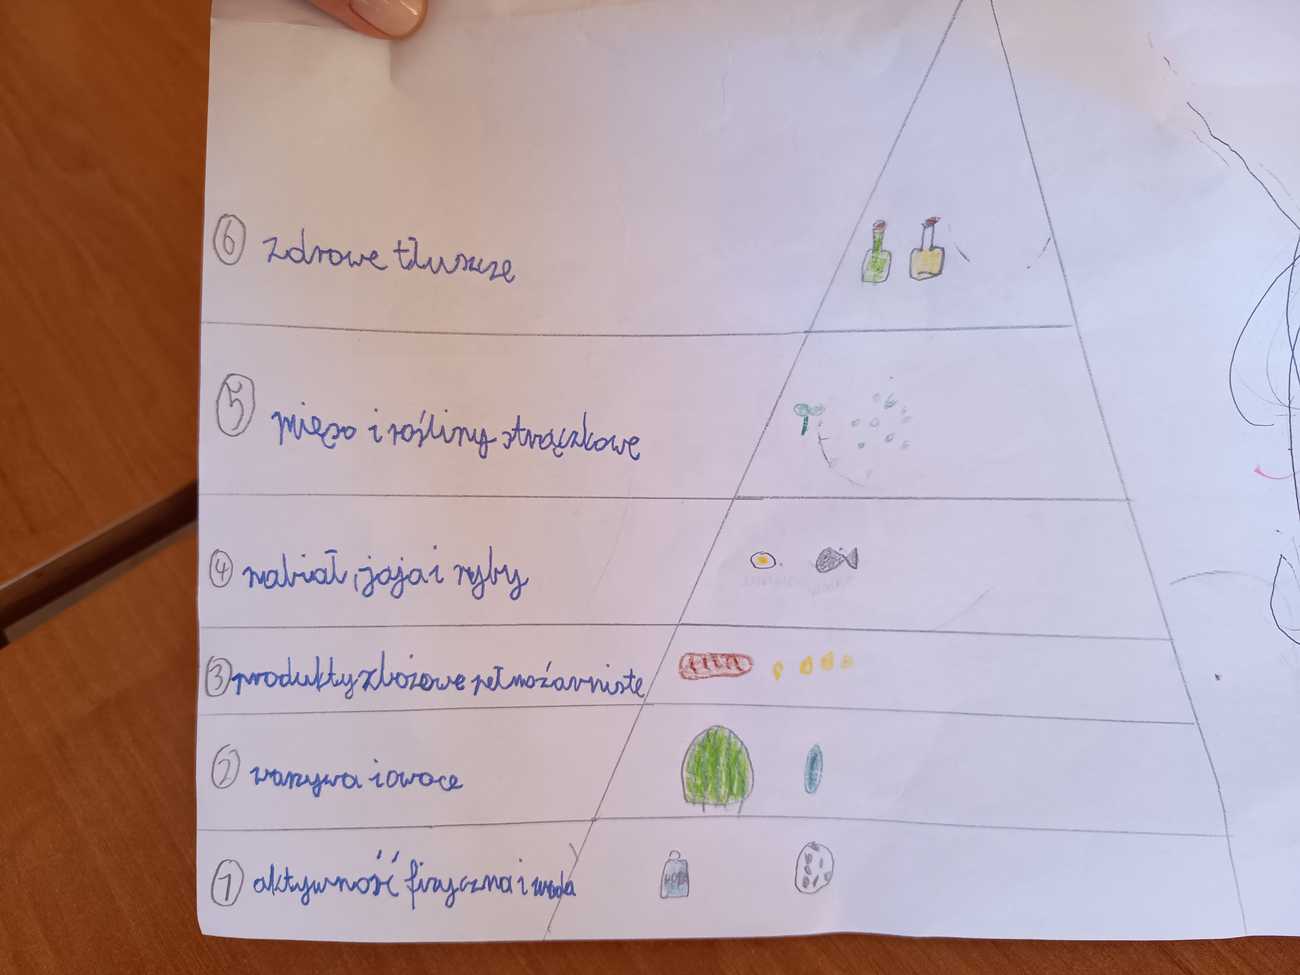 6 Zdrowe tłuszcze
5 mięso i rośliny strączkowe
4 nabiał, jaja i ryby
3 produkty zbożowe pełnoźarniste
2 warzywa i owoce
1 aktywność fizyczna i woda